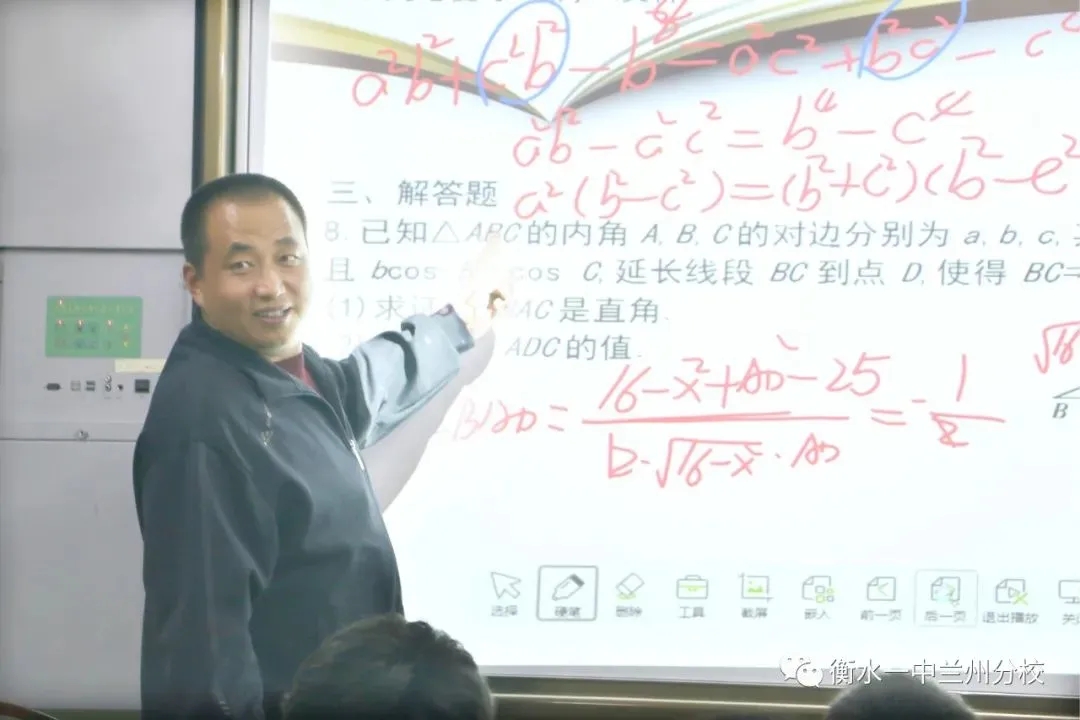 a²b²+c²b²-b⁴=a²c²+b²c²-c
a²b²-a²c²=b⁴-c⁴
三、解答题
a²(b²-c²)=(b²+c²)(b²-c²
8.已知△ABC的内角A,B,C的对边分别为a,b,c,
且 bcos cos C,延长线段 BC 到点 D,使得 BC=
(1)求证 AC是直角.
ADC的值.
16-x²+AD²-25
= =-1/2
2·√16-x²·AD
√16
B
选择 硬笔 删除 工具 截屏 嵌入 前一页 后一页 退出播放
衡水一中兰州分校